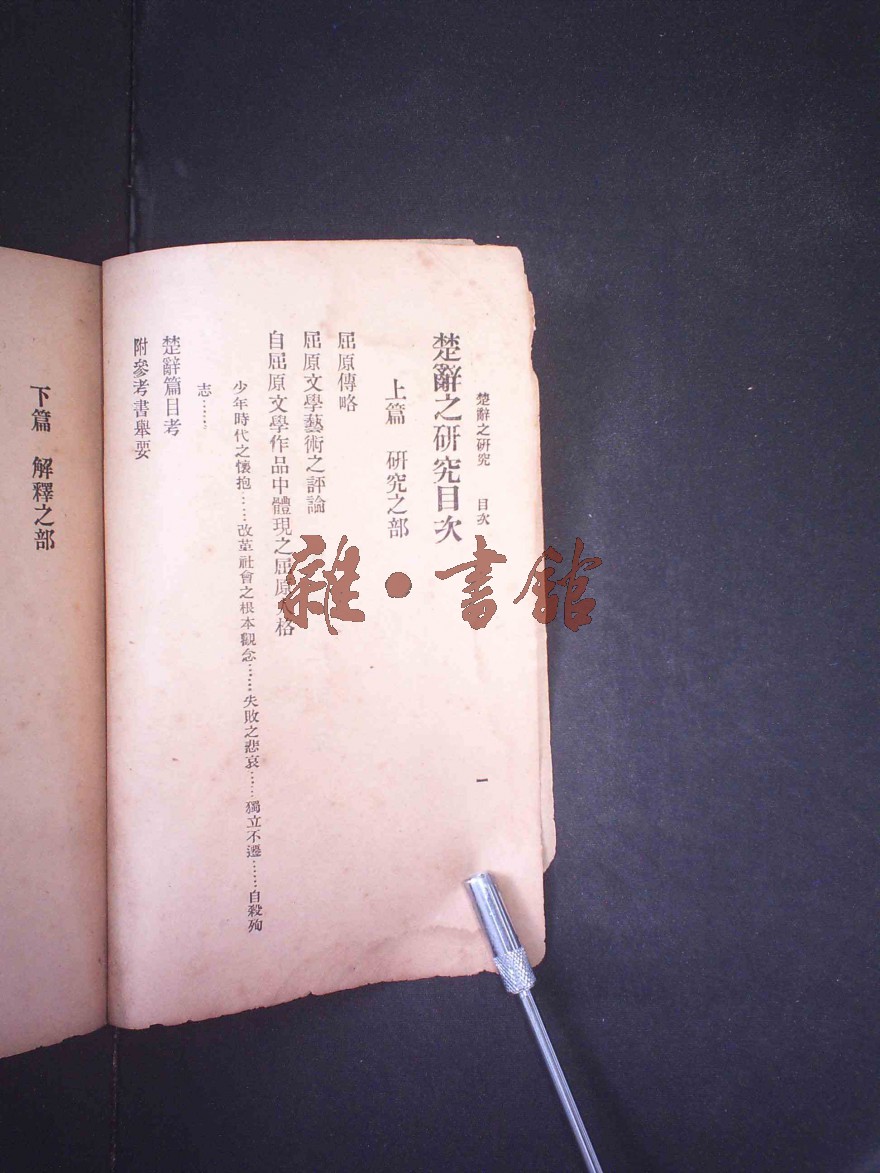 楚辭之研究 目次
一
楚辭之研究目次
上篇 研究之部
屈原傳略
屈原文學藝術之評論
自屈原文學作品中體現之屈原 格
少年時代之懷抱……改革社會之根本觀念……失敗之悲哀……獨立不遷……自殺殉
志……。
楚辭篇目考
附參考書舉要
下篇 解釋之部
雜•書館